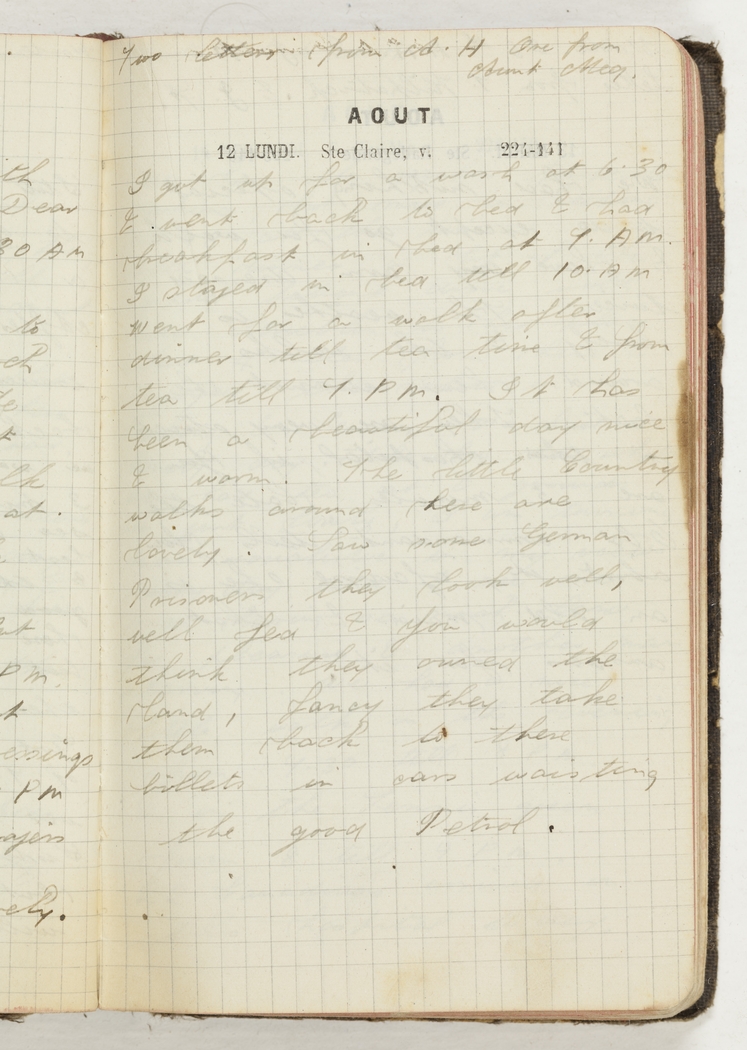 th
Dear
30 AM
to
ch
t
lk
at.
ut
PM.
t
essings
PM
ely.
Two letters from A. H One from
Aunt Meg.
AOUT
12 LUNDI. Ste Claire, v. 224-141
I got up for a wash at 6.30
& went back to bed & had
breakfast in bed at 9. AM.
I stayed in bed till 10. AM
went for a walk after
dinner till tea time & from
tea till 9. PM. It has
been a beautiful day nice
& warm. The little Country
walks around here are
lovely. Saw some German
Prisoners they look well,
well fed & you would
think they owned the
land, fancy they take
them back to there
billets in cars waisting
the good Petrol.